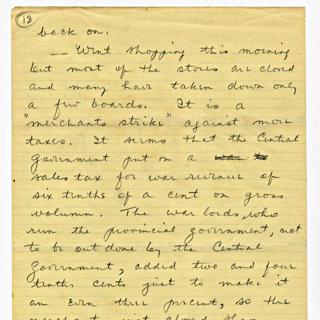 13
back on.
— Went shopping this morning
but most of the stores are closed
and many have taken down only
a few boards. It is a
"merchants strike" against more
taxes. It seems that the Central
Government put on a war ta
sales tax for war revenue of
six tenths of a cent on gross
volumn. The war lords, who
run the provincial government, not
to be out done by the Central
Government, added two and four
tenths cents just to make it
an even three percent, so the